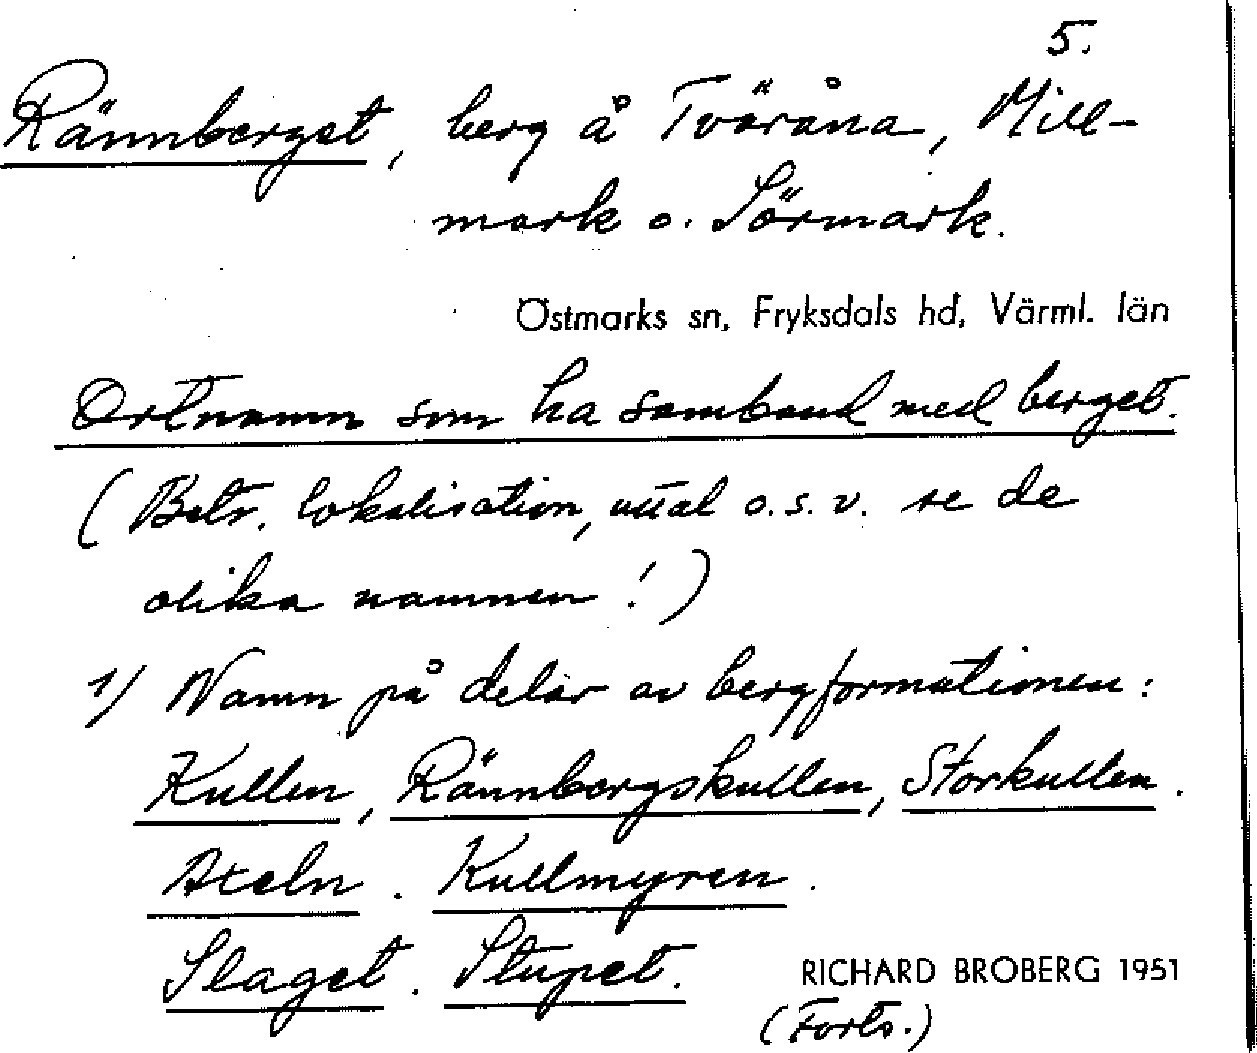 5.
Rännberget, berg å Tväråna, Mill-
mark o. Sörmark.
Östmarks sn, Fryksdals hd, Värml. län
Ortnamn som ha samband med berget.
(Betr. lokalisation, uttal o.s.v. se de
olika namnen!)
1/ Namn på delar av bergformationen:
Kullen, Rännbergskullen, Storkullen.
Axeln. Kullmyren.
Slaget. Stupet.
RICHARD BROBERG 1951
(Forts.)